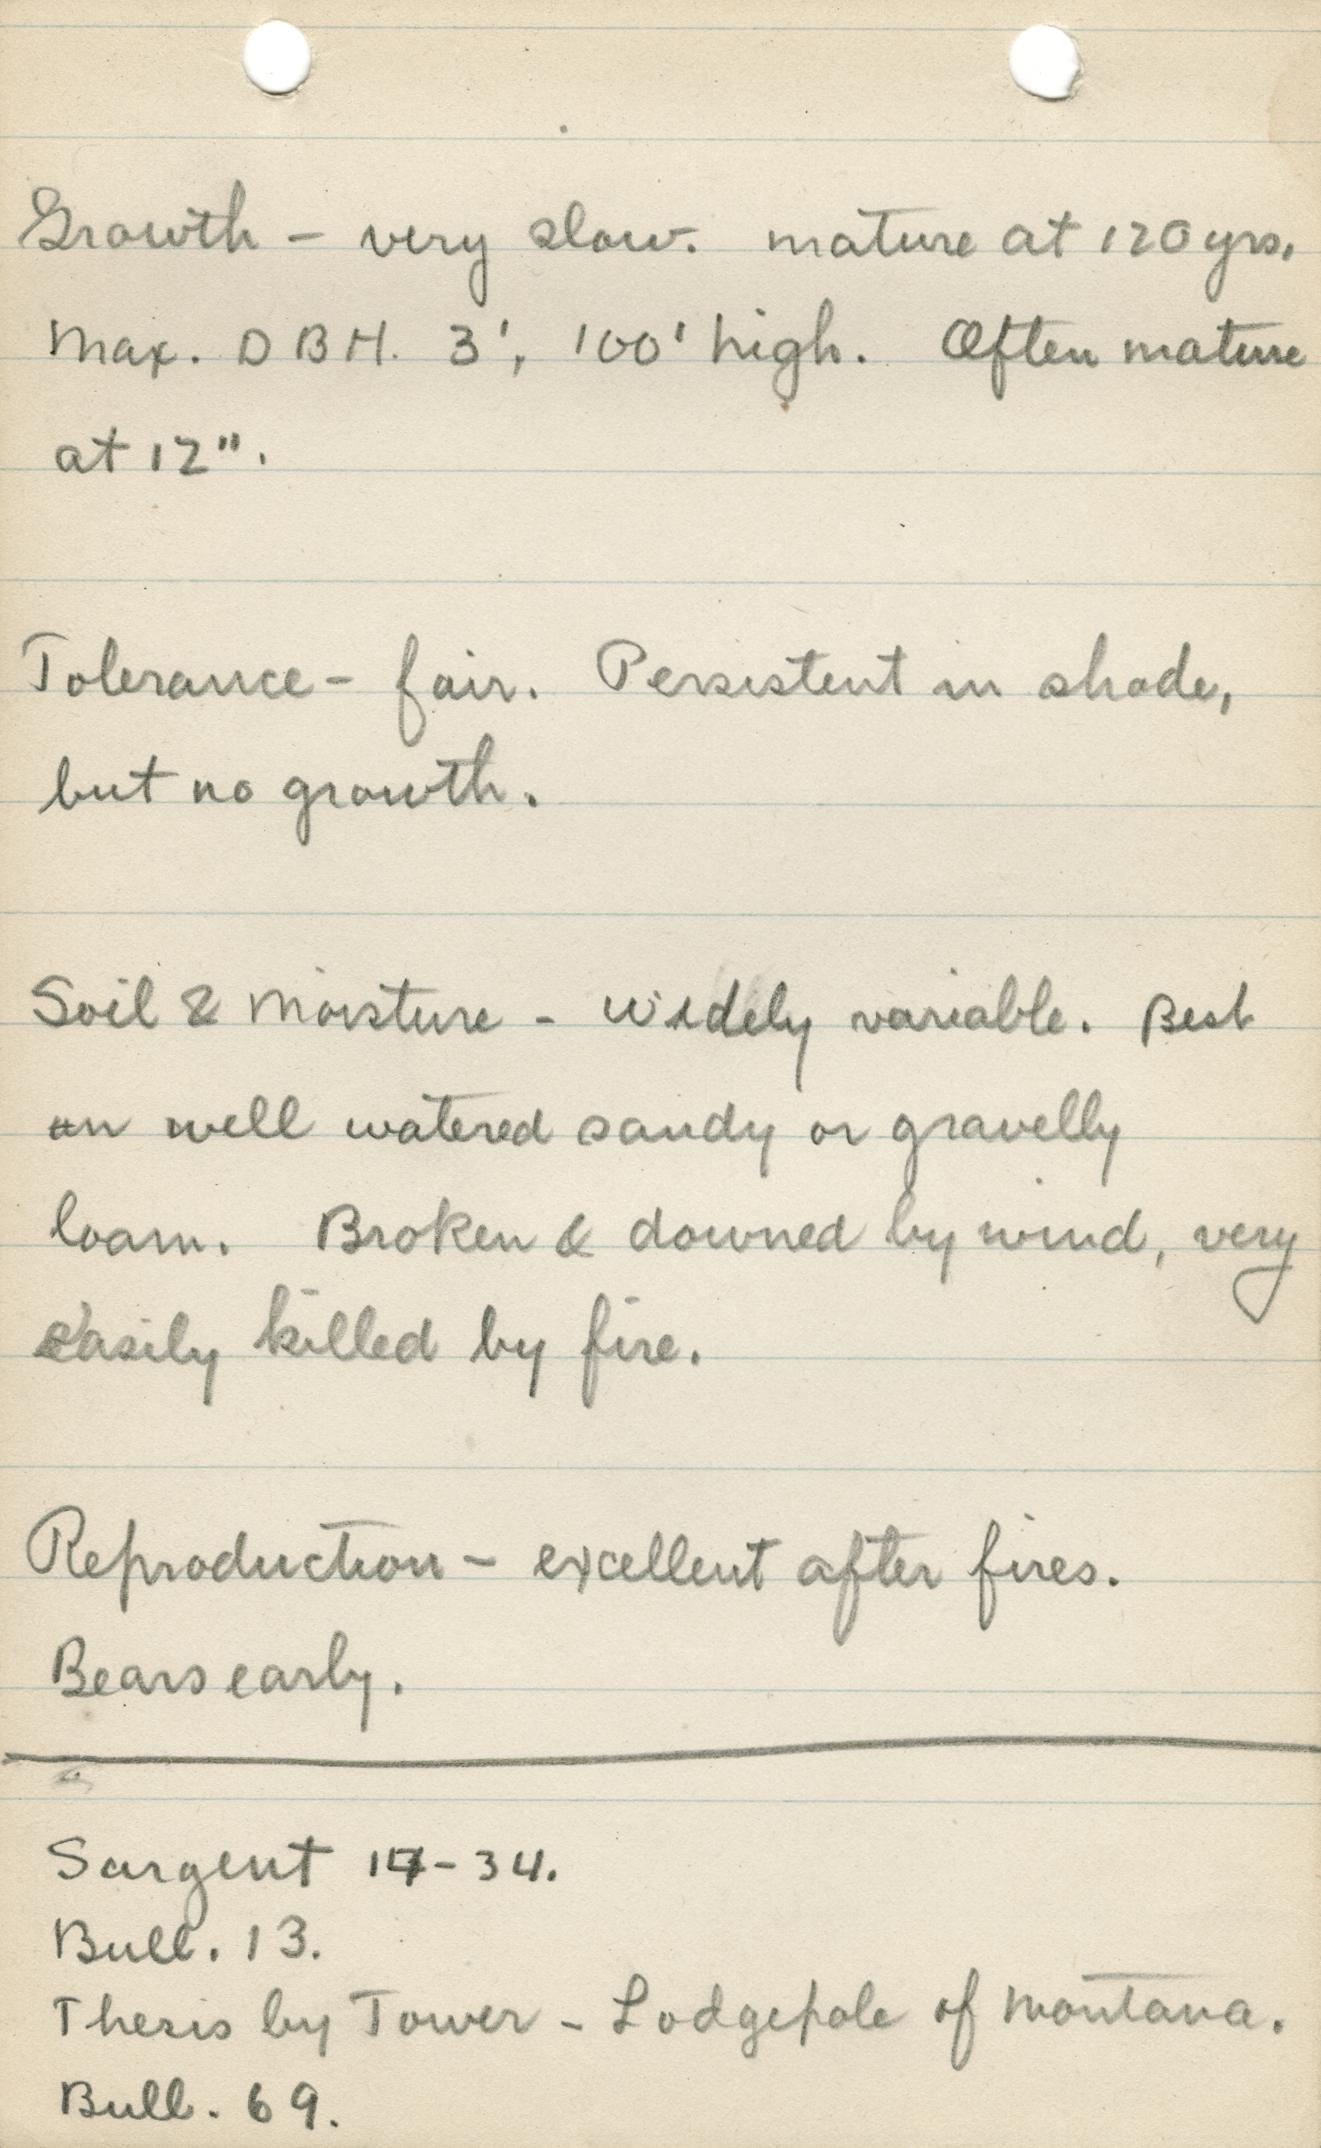 Growth - very slow. mature at 120 yrs.
Max. D B H. 3', 100' high. Often mature
at 12".
Tolerance - fair. Persistent in shade,
but no growth.
Soil & Moisture - widely variable. Best
on well watered sandy or gravelly
loam. Broken & downed by wind, very
easily killed by fire.
Reproduction - excellent after fires.
Bears early.
Sargent -34.
Bull. 13.
Thesis by Tower - Lodgepole of Montana.
Bull. 69.